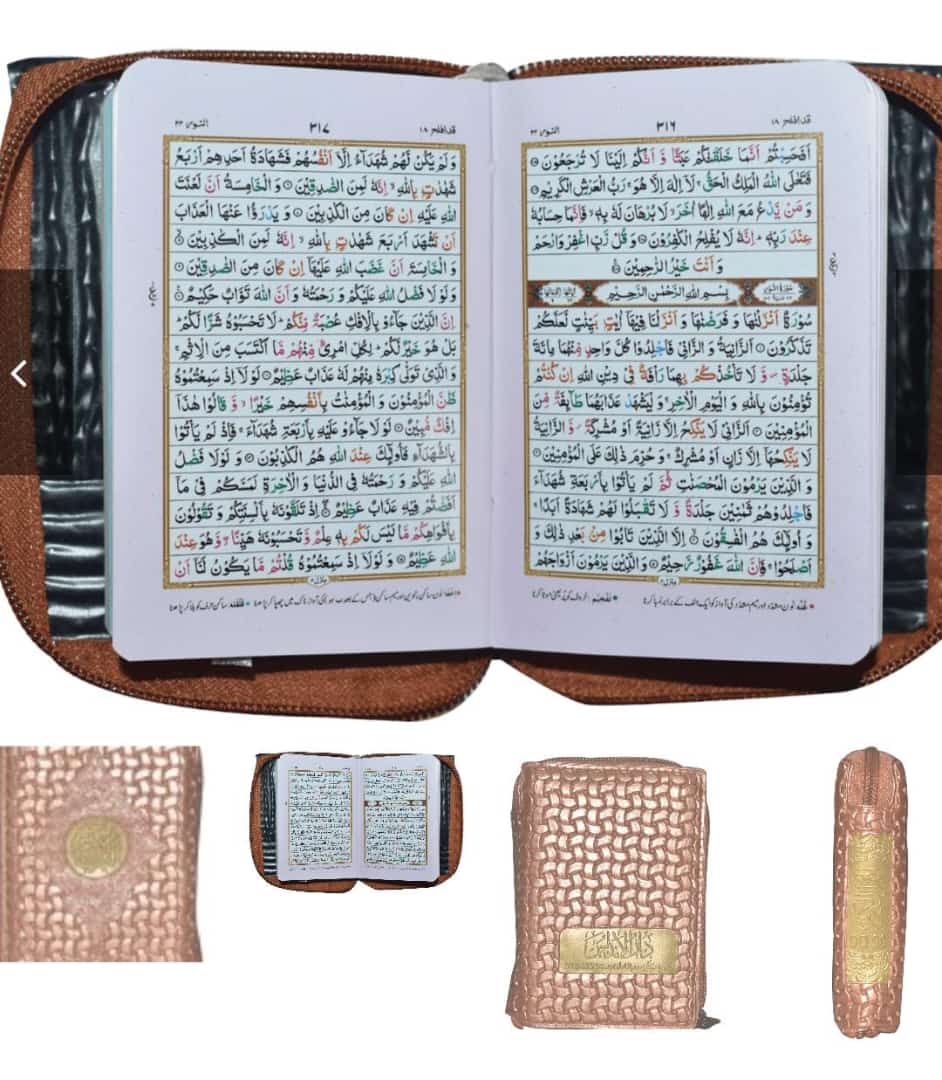 قد افلح ۱۸
۳۱۶
النور ۲۴
اَفَحَسِبْتُمْ اَنَّمَا خَلَقْنٰكُمْ عَبَثًا وَّ اَنَّكُمْ اِلَيْنَا لَا تُرْجَعُوْنَ
فَتَعٰلَى اللّٰهُ الْمَلِكُ الْحَقُّ لَاۤ اِلٰهَ اِلَّا هُوَ رَبُّ الْعَرْشِ الْكَرِيْمِ
وَ مَنْ يَّدْعُ مَعَ اللّٰهِ اِلٰهًا اٰخَرَ لَا بُرْهَانَ لَهٗ بِهٖ فَاِنَّمَا حِسَابُهٗ
عِنْدَ رَبِّهٖ اِنَّهٗ لَا يُفْلِحُ الْكٰفِرُوْنَ وَ قُلْ رَّبِّ اغْفِرْ وَ ارْحَمْ
وَ اَنْتَ خَيْرُ الرّٰحِمِيْنَ
بِسْمِ اللّٰهِ الرَّحْمٰنِ الرَّحِيْمِ
سُوْرَةٌ اَنْزَلْنٰهَا وَ فَرَضْنٰهَا وَ اَنْزَلْنَا فِيْهَاۤ اٰيٰتٍۭ بَيِّنٰتٍ لَّعَلَّكُمْ
تَذَكَّرُوْنَ اَلزَّانِيَةُ وَ الزَّانِيْ فَاجْلِدُوْا كُلَّ وَاحِدٍ مِّنْهُمَا مِائَةَ
جَلْدَةٍ وَّ لَا تَاْخُذْكُمْ بِهِمَا رَاْفَةٌ فِيْ دِيْنِ اللّٰهِ اِنْ كُنْتُمْ
تُؤْمِنُوْنَ بِاللّٰهِ وَ الْيَوْمِ الْاٰخِرِ وَ لْيَشْهَدْ عَذَابَهُمَا طَآىِٕفَةٌ مِّنَ
الْمُؤْمِنِيْنَ اَلزَّانِيْ لَا يَنْكِحُ اِلَّا زَانِيَةً اَوْ مُشْرِكَةً وَّ الزَّانِيَةُ
لَا يَنْكِحُهَاۤ اِلَّا زَانٍ اَوْ مُشْرِكٌ وَ حُرِّمَ ذٰلِكَ عَلَى الْمُؤْمِنِيْنَ
وَ الَّذِيْنَ يَرْمُوْنَ الْمُحْصَنٰتِ ثُمَّ لَمْ يَاْتُوْا بِاَرْبَعَةِ شُهَدَآءَ
فَاجْلِدُوْهُمْ ثَمٰنِيْنَ جَلْدَةً وَّ لَا تَقْبَلُوْا لَهُمْ شَهَادَةً اَبَدًا
وَ اُولٰٓىِٕكَ هُمُ الْفٰسِقُوْنَ اِلَّا الَّذِيْنَ تَابُوْا مِنْۢ بَعْدِ ذٰلِكَ وَ
اَصْلَحُوْا فَاِنَّ اللّٰهَ غَفُوْرٌ رَّحِيْمٌ وَ الَّذِيْنَ يَرْمُوْنَ اَزْوَاجَهُمْ
قد افلح ۱۸
۳۱۷
النور ۲۴
وَ لَمْ يَكُنْ لَّهُمْ شُهَدَآءُ اِلَّاۤ اَنْفُسُهُمْ فَشَهَادَةُ اَحَدِهِمْ اَرْبَعُ
شَهٰدٰتٍۭ بِاللّٰهِ اِنَّهٗ لَمِنَ الصّٰدِقِيْنَ وَ الْخَامِسَةُ اَنَّ لَعْنَتَ
اللّٰهِ عَلَيْهِ اِنْ كَانَ مِنَ الْكٰذِبِيْنَ وَ يَدْرَؤُا عَنْهَا الْعَذَابَ
اَنْ تَشْهَدَ اَرْبَعَ شَهٰدٰتٍۭ بِاللّٰهِ اِنَّهٗ لَمِنَ الْكٰذِبِيْنَ
وَ الْخَامِسَةَ اَنَّ غَضَبَ اللّٰهِ عَلَيْهَاۤ اِنْ كَانَ مِنَ الصّٰدِقِيْنَ
وَ لَوْ لَا فَضْلُ اللّٰهِ عَلَيْكُمْ وَ رَحْمَتُهٗ وَ اَنَّ اللّٰهَ تَوَّابٌ حَكِيْمٌ
اِنَّ الَّذِيْنَ جَآءُوْ بِالْاِفْكِ عُصْبَةٌ مِّنْكُمْ لَا تَحْسَبُوْهُ شَرًّا لَّكُمْ
بَلْ هُوَ خَيْرٌ لَّكُمْ لِكُلِّ امْرِئٍ مِّنْهُمْ مَّا اكْتَسَبَ مِنَ الْاِثْمِ
وَ الَّذِيْ تَوَلّٰى كِبْرَهٗ مِنْهُمْ لَهٗ عَذَابٌ عَظِيْمٌ لَوْ لَاۤ اِذْ سَمِعْتُمُوْهُ
ظَنَّ الْمُؤْمِنُوْنَ وَ الْمُؤْمِنٰتُ بِاَنْفُسِهِمْ خَيْرًا وَّ قَالُوْا هٰذَاۤ
اِفْكٌ مُّبِيْنٌ لَوْ لَا جَآءُوْ عَلَيْهِ بِاَرْبَعَةِ شُهَدَآءَ فَاِذْ لَمْ يَاْتُوْا
بِالشُّهَدَآءِ فَاُولٰٓىِٕكَ عِنْدَ اللّٰهِ هُمُ الْكٰذِبُوْنَ وَ لَوْ لَا فَضْلُ
اللّٰهِ عَلَيْكُمْ وَ رَحْمَتُهٗ فِي الدُّنْيَا وَ الْاٰخِرَةِ لَمَسَّكُمْ فِيْ مَاۤ
اَفَضْتُمْ فِيْهِ عَذَابٌ عَظِيْمٌ اِذْ تَلَقَّوْنَهٗ بِاَلْسِنَتِكُمْ وَ تَقُوْلُوْنَ
بِاَفْوَاهِكُمْ مَّا لَيْسَ لَكُمْ بِهٖ عِلْمٌ وَّ تَحْسَبُوْنَهٗ هَيِّنًا وَّ هُوَ عِنْدَ
اللّٰهِ عَظِيْمٌ وَ لَوْ لَاۤ اِذْ سَمِعْتُمُوْهُ قُلْتُمْ مَّا يَكُوْنُ لَنَاۤ اَنْ